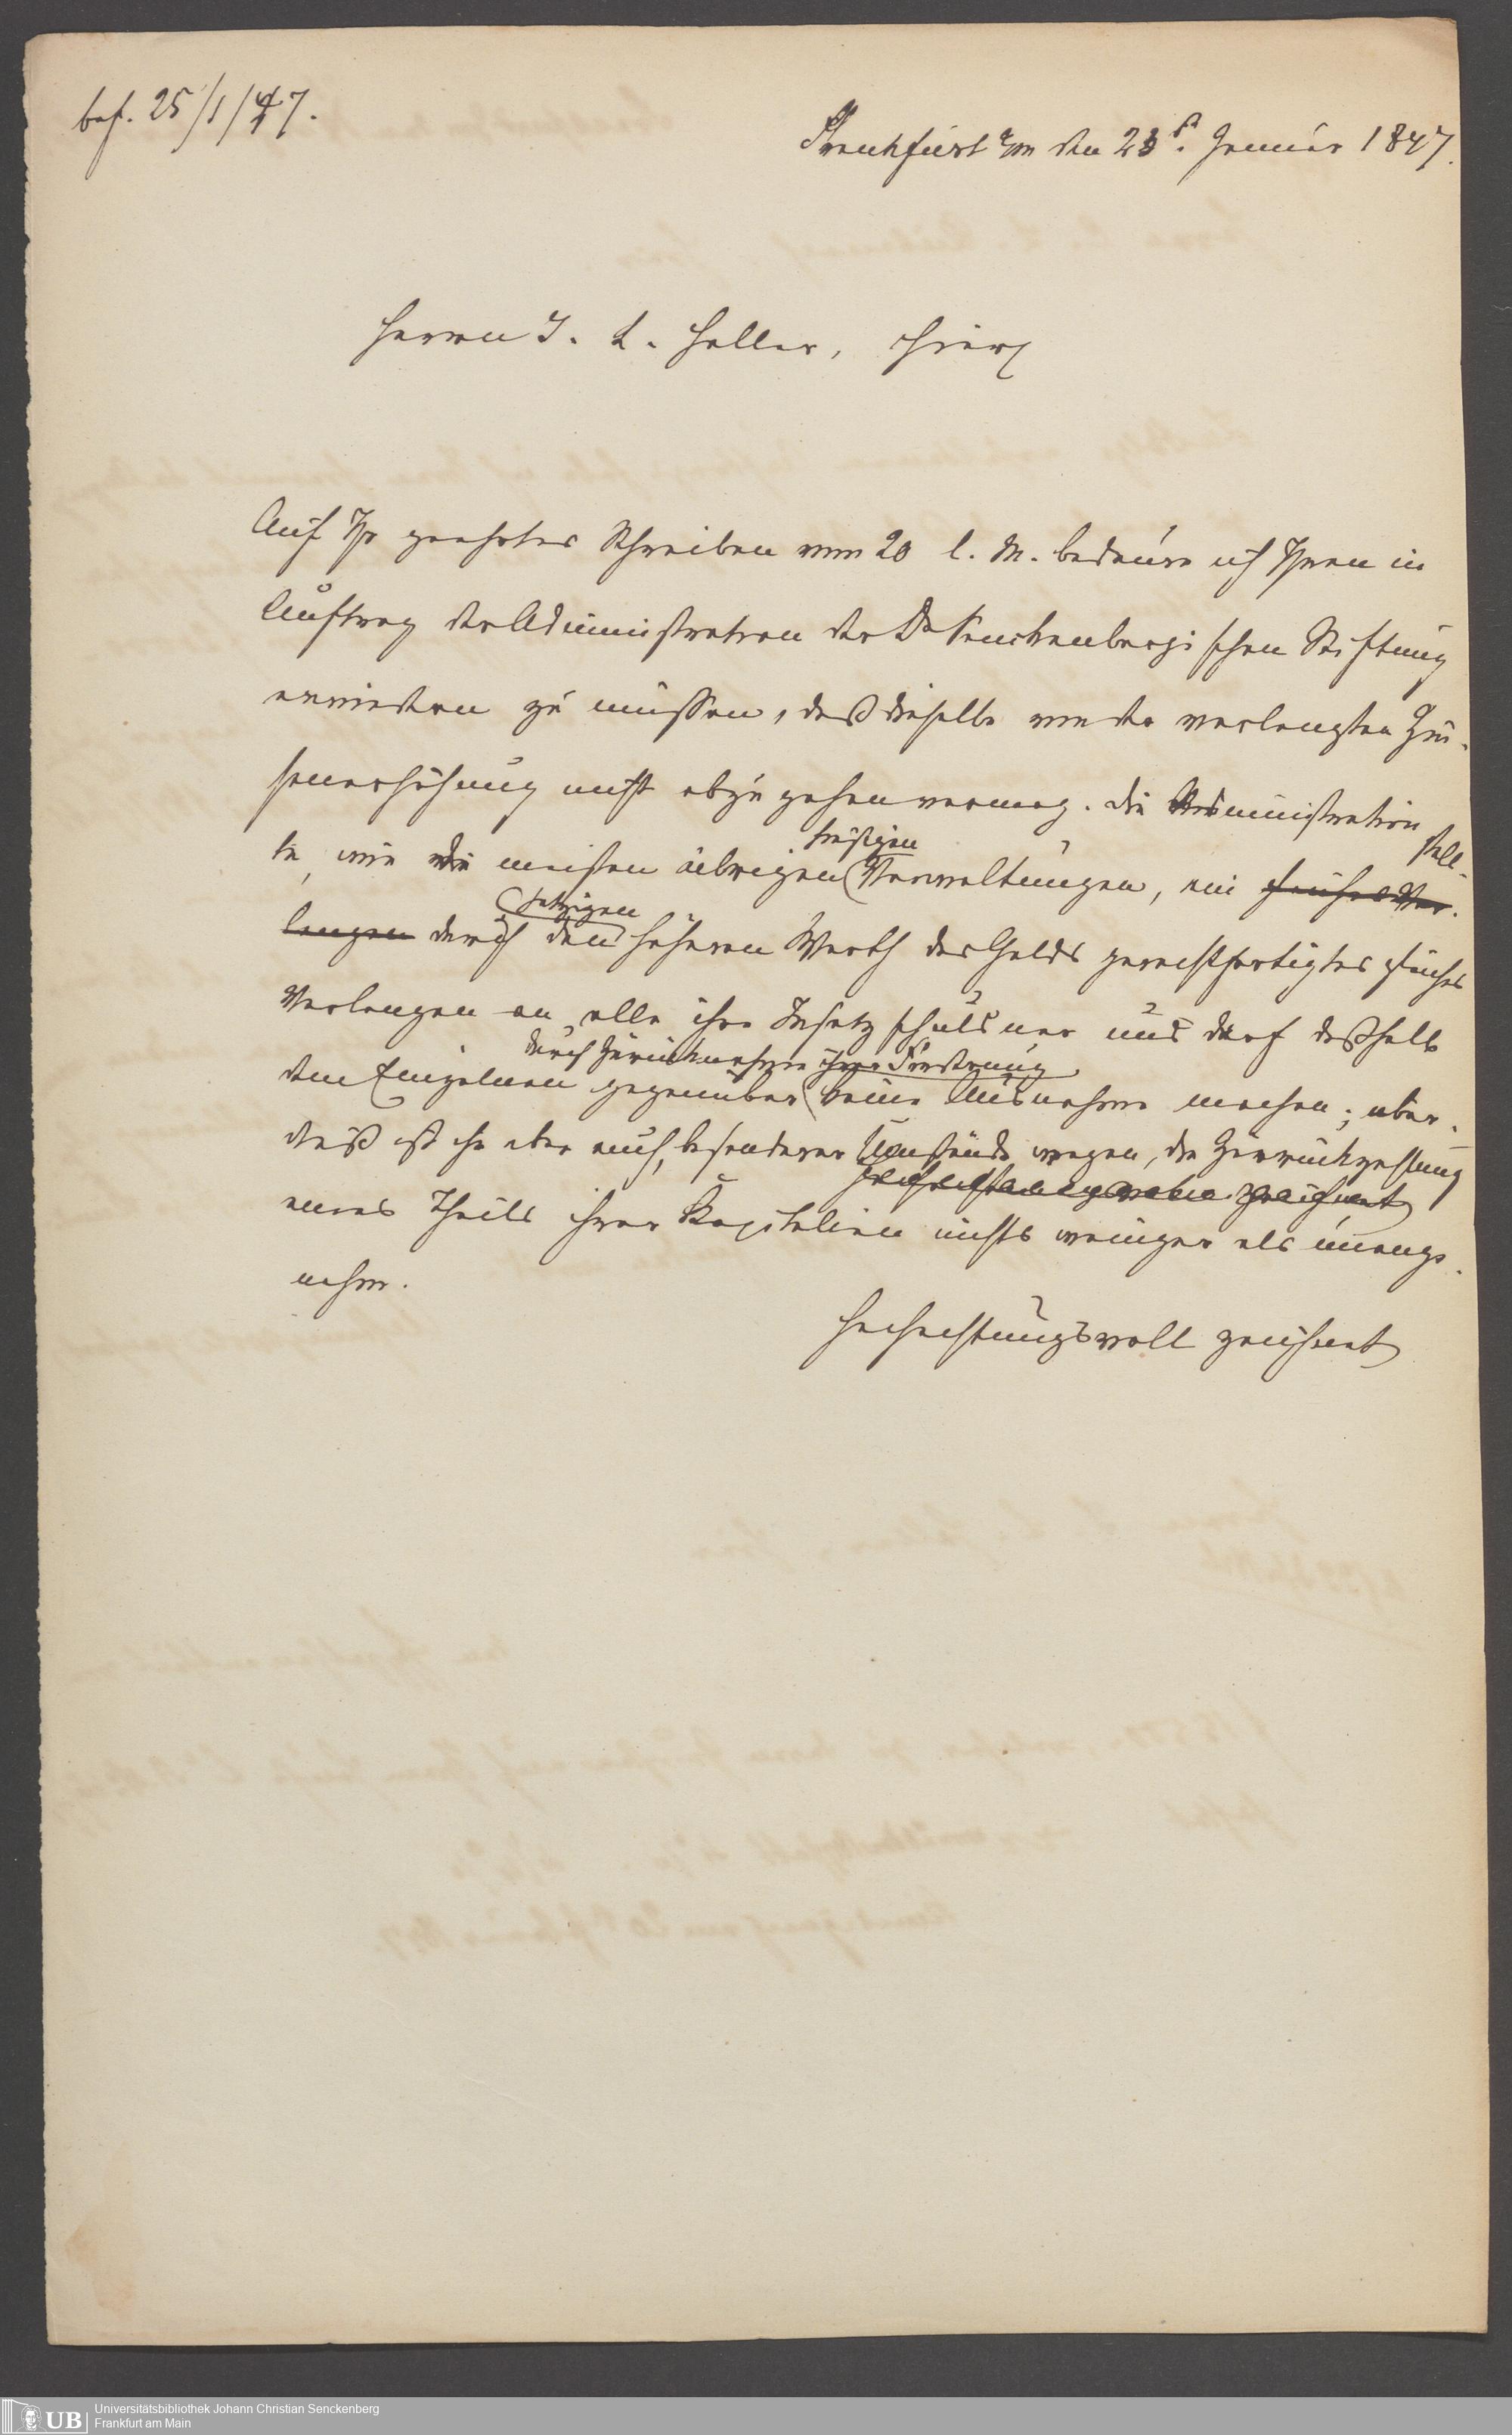 bes. 25/1/47.
Frankfurt a/m den 23t. Januar 1847.
Herrn J. L. Haller, Hier
Auf Ihr geehrtes Schreiben vom 20 l. M. bedaure ich Ihnen im
Auftrag der Administration der Dr Senckenbergischen Stiftung
erwiedern zu müssen, daß dieselbe von der verlangten Zin-
senerhöhung nicht abzugehen vermag. Die Administration stell-
te, wie die meisten übrigen hiesigen Verwaltungen, ein
durch den jetzigen höheren Werth des Gelds gerechtfertigtes gleiches
Verlangen an alle ihre Insatzschuldner und darf deßhalb
dem Einzelnen gegenüber durch Zurücknahme ihrer Forderung keine Ausnahme machen; über-
dieß ist ihr aber auch, besonderer Umstände wegen, die Zurückzahlung
eines Theils ihrer Kapitalien nichts weniger als unange-
nehm.
Hochachtungsvoll zeichnet
Universitätsbibliothek Johann Christian Senckenberg
Frankfurt am Main
UB